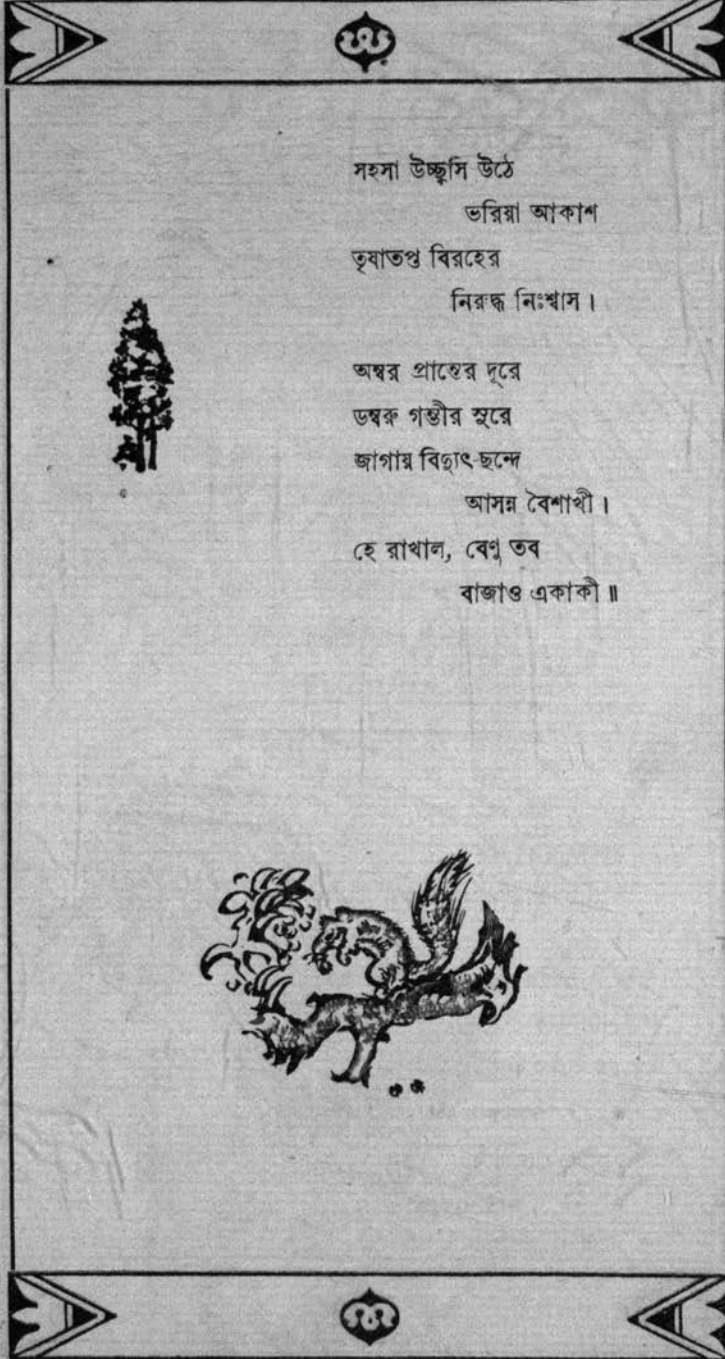 সহসা উচ্ছ্বসি উঠে
ভরিয়া আকাশ
তৃষাতপ্ত বিরহের
নিরুদ্ধ নিঃশ্বাস।
অম্বর প্রান্তের দূরে
ডম্বরু গম্ভীর সুরে
জাগায় বিদ্যুৎ-ছন্দে
আসন্ন বৈশাখী।
হে রাখাল, বেণু তব
বাজাও একাকী॥